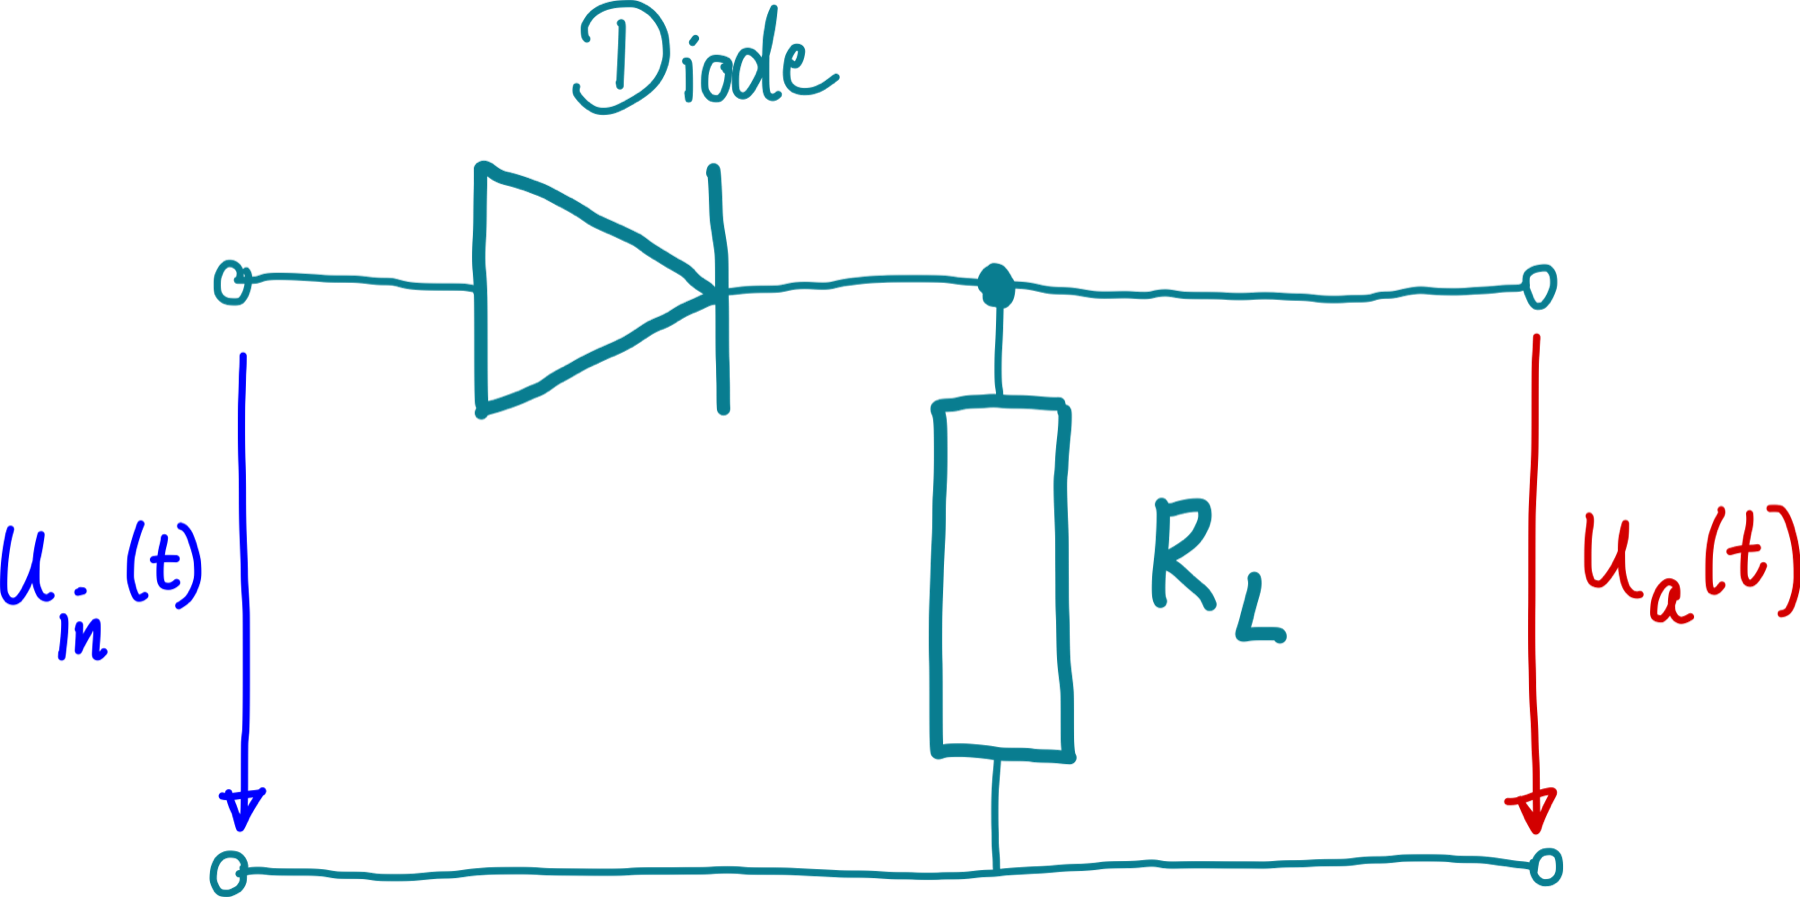 Diode
U_in (t)
R_L
U_a (t)